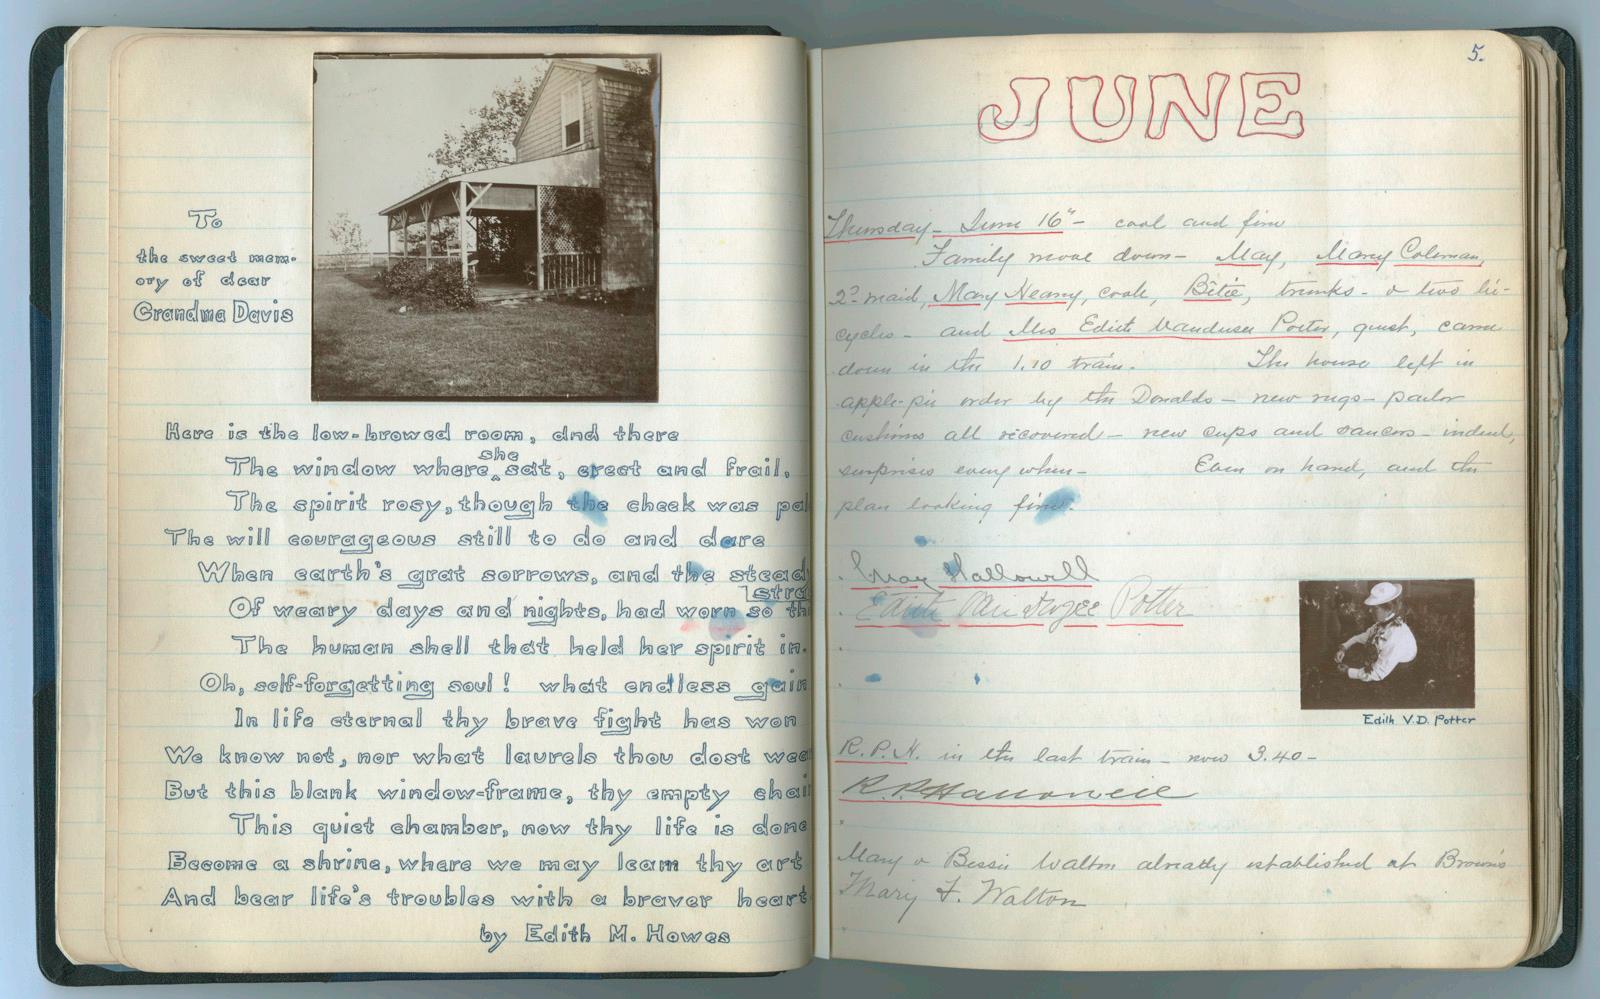 To
the sweet mem-
ory of dear
Grandma Davis
Here is the low-browed room, and there
The window where she sat, erect and frail,
The spirit rosy, though the cheek was pal
The will courageous still to do and dare
When earth's grat sorrows, and the stead
stra
Of weary days and nights, had worn so th
The human shell that held her spirit in.
Oh, self-forgetting soul! what endless gain
In life eternal thy brave fight has won
We know not, nor what laurels thou dost wea
But this blank window-frame, thy empty chai
This quiet chamber, now thy life is done
Become a shrine, where we may learn thy art
And bear life's troubles with a braver heart
by Edith M. Howes
5.
JUNE
Thursday - June 16" - cool and fine
Family move down - May, Mary Coleman,
2d maid, Mary Heany, cook, Bétie, trunks - & two bi-
cycles - and Mrs Edith Vanduser Potter, guest, came
down in the 1.10 train. The house left in
apple-pie order by the Donalds - new rugs - parlor
cushions all recovered - new cups and saucers - indeed,
surprises everywhere - Eben on hand, and the
place looking fine.
May Hallowell
Edith Potter
Edith V.D. Potter
R.P.H. in the last train - now 3.40 -
R.P. Hallowell
Mary & Bessie Walton already established at Brown's
Mary F. Walton